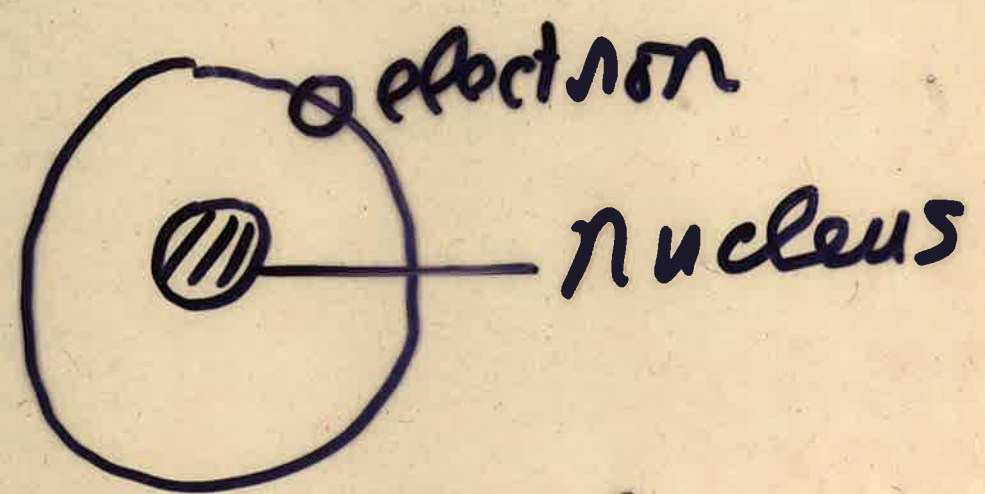 electron
nucleus